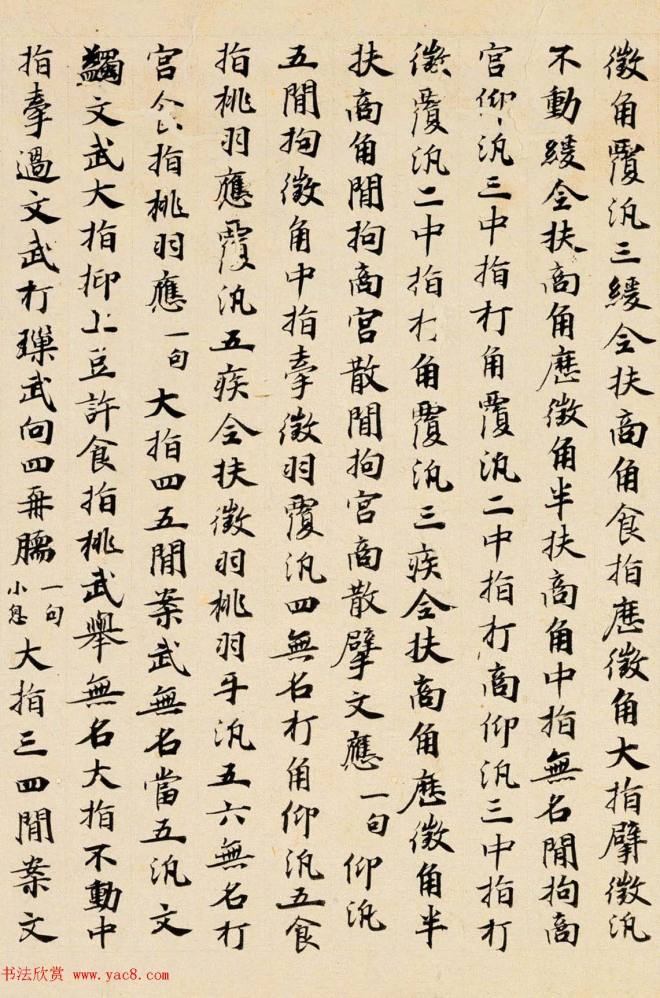 徵角覆汎三緩全扶商角食指歷徵角大指擘徵汎
不動緩全扶商角歷徵角半扶商角中指無名閒拘商
宮仰汎三中指打角覆汎二中指打商仰汎三中指打
徵覆汎二中指打角覆汎三疾全扶商角歷徵角半
扶商角閒拘商宮散閒拘宮商散擘文應一句仰汎
五閒拘徵角中指牽徵羽覆汎四無名打角仰汎五食
指挑羽應覆汎五疾全扶徵羽挑羽牙汎五六無名打
宮食指挑羽應一句大指四五閒案武無名當五汎文
蠲文武大指抑上豆許食指挑武舉無名大指不動中
指牽過文武打武向四一句小息大指三四閒案文
书法欣赏 www.yac8.com